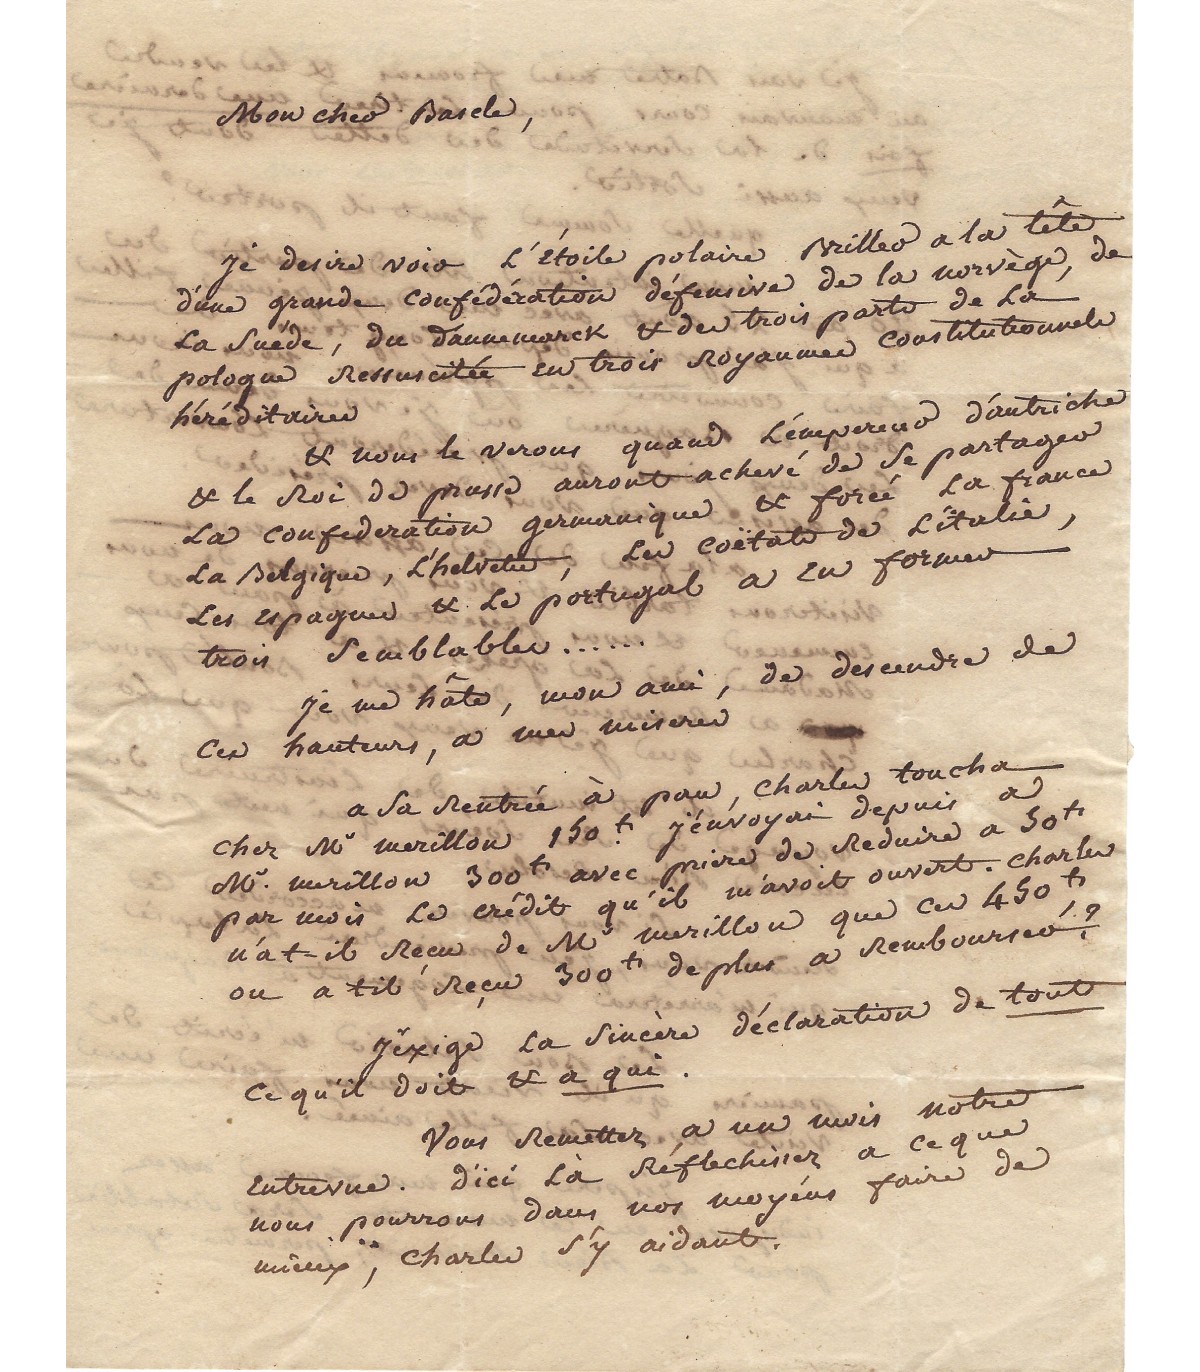 Mon cher Bascle,
Je desire voir L'étoile polaire Briller a la tête
d'une grande confédération défensive de la norvège, de
La Suéde, du dannemarck & des trois parts de La
pologne Ressuscitée en trois Royaumes constitutionnels
héréditaires
& nous le verons quand L'empereur d'autriche
& le Roi de prusse auront achevé de se partager
La confederation germanique & forcé La france
La Belgique, L'helvetie, Les coëtats de L'italie,
Les espagnes & Le portugal a en former
trois semblables......
Je me hâte, mon ami, de descendre de
ces hauteurs, a mes miseres
a sa Rentrée à pau, charles toucha
chez Mr merillon 150tt. J'envoyai depuis a
Mr. merillon 300tt avec priere de Reduire a 50tt
par mois Le crédit qu'il m'avoit ouvert. charles
n'at-il Reçu de Mr merillon que ces 450tt
ou a til Reçu 300tt de plus a Rembourser?
J'exige La sincère déclaration de tout
ce qu'il doit & a qui.
Vous Remettez a un mois notre
entrevue. d'ici Là Réflechissez a ce que
nous pourrons dans nos moyéns faire de
mieux, charles s'y aidant.